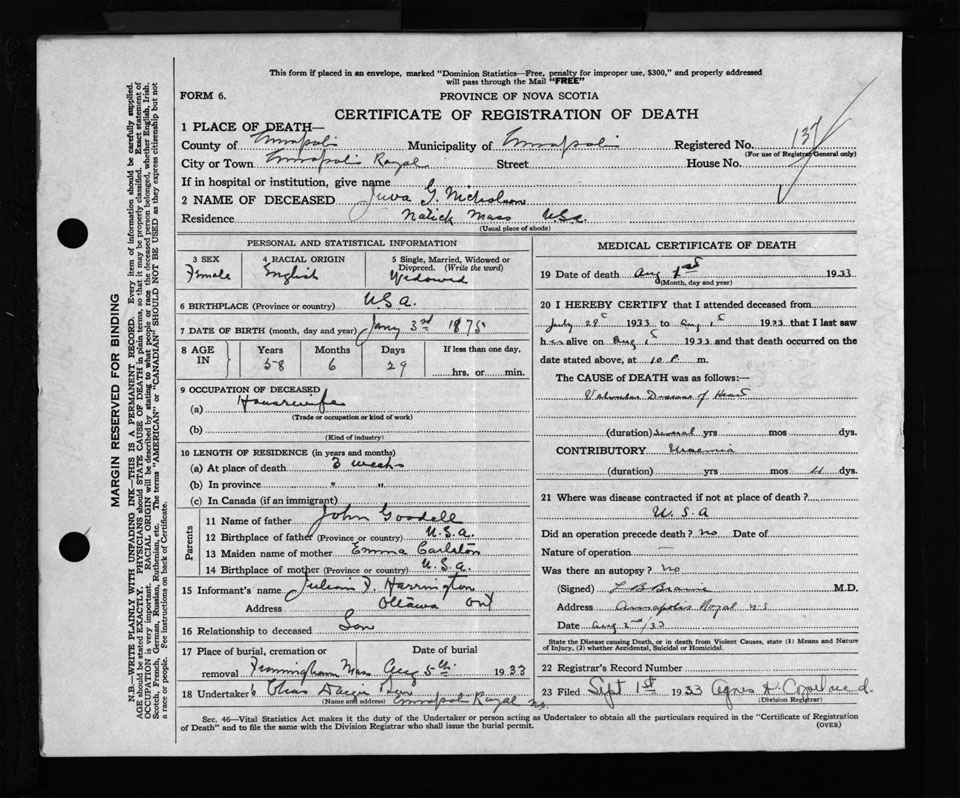 This form if placed in an envelope, marked "Dominion Statistics—Free, penalty for improper use, $300," and properly addressed
will pass through the Mail "FREE"
FORM 6.
PROVINCE OF NOVA SCOTIA
CERTIFICATE OF REGISTRATION OF DEATH
1 PLACE OF DEATH—
County of Annapolis Municipality of Annapolis Registered No. 137
(For use of Registrar General only)
City or Town Annapolis Royal Street House No.
If in hospital or institution, give name
2 NAME OF DECEASED G. Nicholson
Residence Natick Mass U.S.A.
(Usual place of abode)
PERSONAL AND STATISTICAL INFORMATION
3 SEX 4 RACIAL ORIGIN 5 Single, Married, Widowed or
Divorced. (Write the word)
Female English Widowed
6 BIRTHPLACE (Province or country) U.S.A.
7 DATE OF BIRTH (month, day and year) Jany 3rd 1875
8 AGE IN Years Months Days If less than one day,
58 6 29 hrs. or min.
9 OCCUPATION OF DECEASED
(a) Housewife
(Trade or occupation or kind of work)
(b)
(Kind of industry)
10 LENGTH OF RESIDENCE (in years and months)
(a) At place of death 3 weeks
(b) In province " "
(c) In Canada (if an immigrant)
Parents
11 Name of father John Goodell
12 Birthplace of father (Province or country) U.S.A.
13 Maiden name of mother Emma Carlton
14 Birthplace of mother (Province or country) U.S.A.
15 Informant's name Julian F. Harrington
Address Ottawa Ont
16 Relationship to deceased Son
17 Place of burial, cremation or Date of burial
removal Framingham Mass Aug 5th 1933
18 Undertaker Chas
(Name and address) Annapolis Royal N.S.
MEDICAL CERTIFICATE OF DEATH
19 Date of death Aug 1st 1933
(Month, day and year)
20 I HEREBY CERTIFY that I attended deceased from
July 29 1933 to Aug 1st 1933 that I last saw
her alive on Aug 1st 1933 and that death occurred on the
date stated above, at 10 P. m.
The CAUSE OF DEATH was as follows:—
Valvular Disease of Heart
(duration) several yrs mos dys.
CONTRIBUTORY Uraemia
(duration) yrs mos 4 dys.
21 Where was disease contracted if not at place of death?
U.S.A
Did an operation precede death? no Date of
Nature of operation —
Was there an autopsy? no
(Signed) L B Braine M.D.
Address Annapolis Royal N.S.
Date Aug 2nd/33
State the Disease causing Death, or in death from Violent Causes, state (1) Means and Nature
of Injury, (2) whether Accidental, Suicidal or Homicidal.
22 Registrar's Record Number
23 Filed Sept 1st 1933 Agnes H. Copeland
(Division Registrar)
Sec. 46—Vital Statistics Act makes it the duty of the Undertaker or person acting as Undertaker to obtain all the particulars required in the "Certificate of Registration
of Death" and to file the same with the Division Registrar who shall issue the burial permit. (OVER)
MARGIN RESERVED FOR BINDING
N.B.—WRITE PLAINLY WITH UNFADING INK—THIS IS A PERMANENT RECORD. Every item of information should be carefully supplied.
AGE should be stated EXACTLY. PHYSICIANS should STATE CAUSE OF DEATH in plain terms, so that it may be properly classified. Exact statement of
OCCUPATION is very important. RACIAL ORIGIN will be described by stating to what people or race the deceased person belonged, whether English, Irish,
Scotch, French, German, Russian, Ruthenian, etc. The terms "AMERICAN" or "CANADIAN" SHOULD NOT BE USED as they express citizenship but not
a race or people. See instructions on back of Certificate.